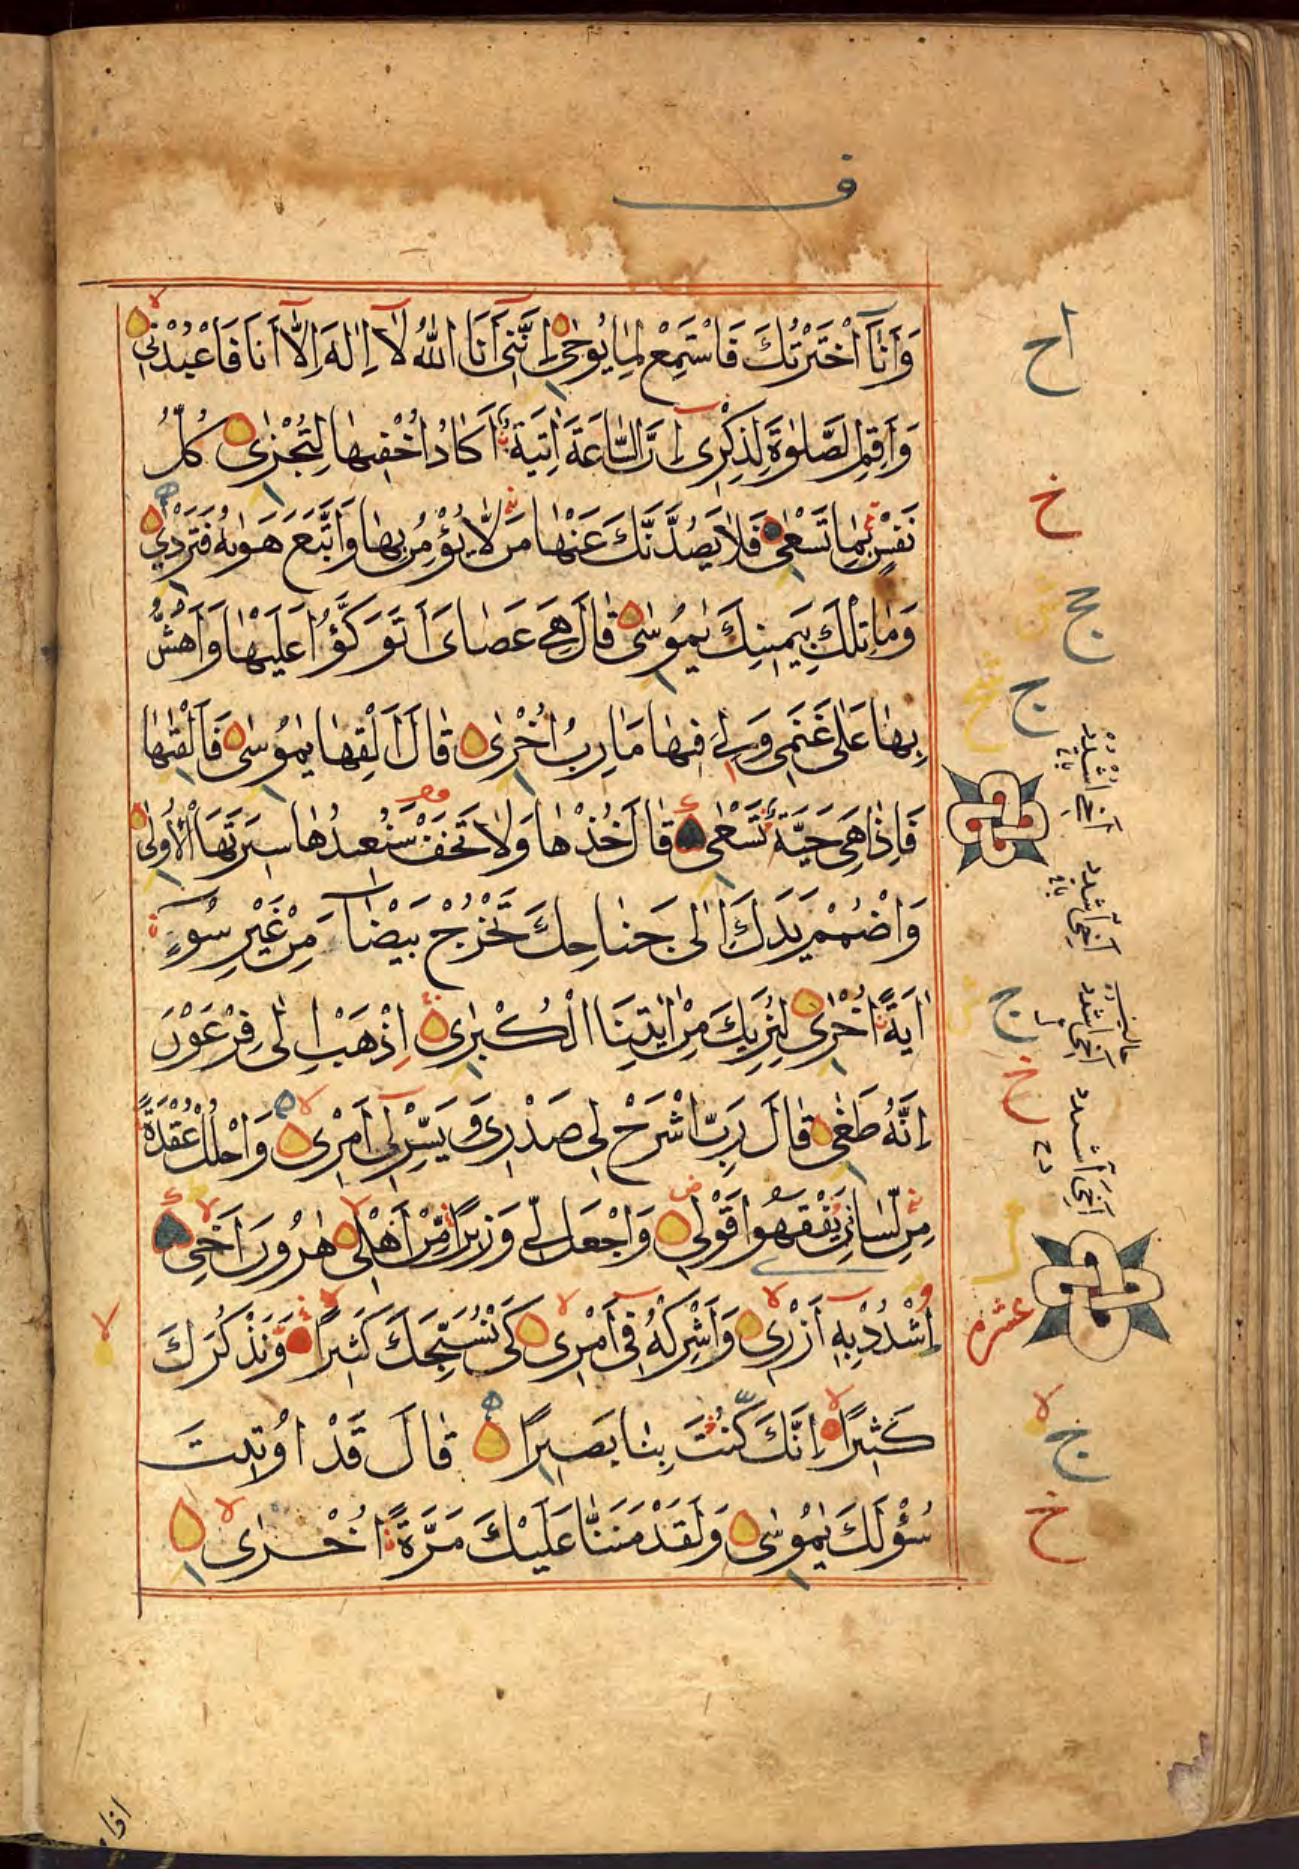 ف
وَأَنَا اخْتَرْتُكَ فَاسْتَمِعْ لِمَا يُوحٰى إِنَّنِي أَنَا اللّٰهُ لَا إِلٰهَ إِلَّا أَنَا فَاعْبُدْنِي
وَأَقِمِ الصَّلٰوةَ لِذِكْرِي إِنَّ السَّاعَةَ اٰتِيَةٌ أَكَادُ أُخْفِيهَا لِتُجْزٰى كُلُّ
نَفْسٍ بِمَا تَسْعٰى فَلَا يَصُدَّنَّكَ عَنْهَا مَنْ لَا يُؤْمِنُ بِهَا وَاتَّبَعَ هَوٰىهُ فَتَرْدٰى
وَمَا تِلْكَ بِيَمِينِكَ يٰمُوسٰى قَالَ هِيَ عَصَايَ أَتَوَكَّؤُا عَلَيْهَا وَأَهُشُّ
بِهَا عَلٰى غَنَمِي وَلِيَ فِيهَا مَاٰرِبُ أُخْرٰى قَالَ أَلْقِهَا يٰمُوسٰى فَأَلْقٰىهَا
فَإِذَا هِيَ حَيَّةٌ تَسْعٰى قَالَ خُذْهَا وَلَا تَخَفْ سَنُعِيدُهَا سِيرَتَهَا الْأُولٰى
وَاضْمُمْ يَدَكَ إِلٰى جَنَاحِكَ تَخْرُجْ بَيْضَاءَ مِنْ غَيْرِ سُوءٍ
اٰيَةً أُخْرٰى لِنُرِيَكَ مِنْ اٰيٰتِنَا الْكُبْرٰى اِذْهَبْ إِلٰى فِرْعَوْنَ
إِنَّهُ طَغٰى قَالَ رَبِّ اشْرَحْ لِي صَدْرِي وَيَسِّرْ لِي أَمْرِي وَاحْلُلْ عُقْدَةً
مِنْ لِسَانِي يَفْقَهُوا قَوْلِي وَاجْعَلْ لِي وَزِيرًا مِنْ أَهْلِي هٰرُونَ أَخِي
اشْدُدْ بِهِ أَزْرِي وَأَشْرِكْهُ فِي أَمْرِي كَيْ نُسَبِّحَكَ كَثِيرًا وَنَذْكُرَكَ
كَثِيرًا إِنَّكَ كُنْتَ بِنَا بَصِيرًا قَالَ قَدْ أُوتِيتَ
سُؤْلَكَ يٰمُوسٰى وَلَقَدْ مَنَنَّا عَلَيْكَ مَرَّةً أُخْرٰى
اح
خ
ج
ج
أخي اشدد
أخي اشدد
ج
أخي اشدد
خ
أخي أشدد
عشر
ج
خ